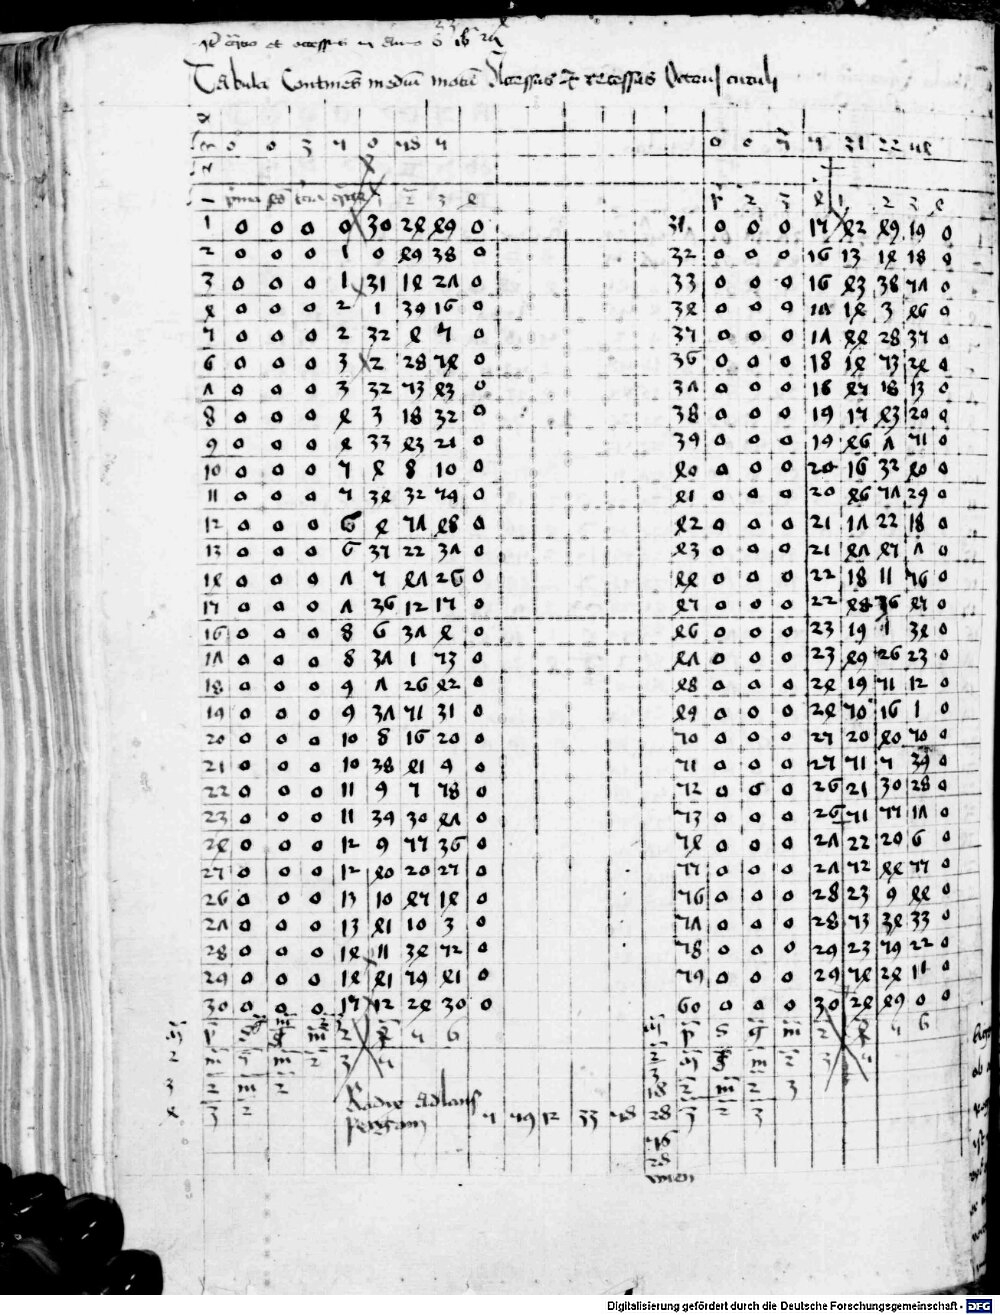 Tabula Continens medium motum Accessus et recessus Octaui circuli
0 0 3 5 0 58 5 0 0 5 5 31 22 48
1 0 0 0 0 30 24 49 0 31 0 0 0 15 42 49 19 0
2 0 0 0 1 0 49 38 0 32 0 0 0 16 13 14 18 0
3 0 0 0 1 31 14 27 0 33 0 0 0 16 43 38 57 0
4 0 0 0 2 1 39 16 0 34 0 0 0 17 14 3 46 0
5 0 0 0 2 32 4 5 0 35 0 0 0 17 44 28 35 0
6 0 0 0 3 2 28 54 0 36 0 0 0 18 14 53 24 0
7 0 0 0 3 32 53 43 0 37 0 0 0 18 45 18 13 0
8 0 0 0 4 3 18 32 0 38 0 0 0 19 15 43 20 0
9 0 0 0 4 33 43 21 0 39 0 0 0 19 46 7 51 0
10 0 0 0 5 4 8 10 0 40 0 0 0 20 16 32 40 0
11 0 0 0 5 34 32 59 0 41 0 0 0 20 46 57 29 0
12 0 0 0 6 4 57 48 0 42 0 0 0 21 17 22 18 0
13 0 0 0 6 35 22 37 0 43 0 0 0 21 47 47 7 0
14 0 0 0 7 5 47 26 0 44 0 0 0 22 18 11 56 0
15 0 0 0 7 36 12 15 0 45 0 0 0 22 48 36 45 0
16 0 0 0 8 6 37 4 0 46 0 0 0 23 19 1 34 0
17 0 0 0 8 37 1 53 0 47 0 0 0 23 49 26 23 0
18 0 0 0 9 7 26 42 0 48 0 0 0 24 19 51 12 0
19 0 0 0 9 37 51 31 0 49 0 0 0 24 50 16 1 0
20 0 0 0 10 8 16 20 0 50 0 0 0 25 20 40 50 0
21 0 0 0 10 38 41 9 0 51 0 0 0 25 51 5 39 0
22 0 0 0 11 9 5 58 0 52 0 0 0 26 21 30 28 0
23 0 0 0 11 39 30 47 0 53 0 0 0 26 51 55 17 0
24 0 0 0 12 9 55 36 0 54 0 0 0 27 22 20 6 0
25 0 0 0 12 40 20 25 0 55 0 0 0 27 52 44 55 0
26 0 0 0 13 10 45 14 0 56 0 0 0 28 23 9 44 0
27 0 0 0 13 41 10 3 0 57 0 0 0 28 53 34 33 0
28 0 0 0 14 11 34 52 0 58 0 0 0 29 23 59 22 0
29 0 0 0 14 41 59 41 0 59 0 0 0 29 54 24 11 0
30 0 0 0 15 12 24 30 0 60 0 0 0 30 24 49 0 0
Radix
5 59 12 33 58 28
Digitalisierung gefördert durch die Deutsche Forschungsgemeinschaft - DFG